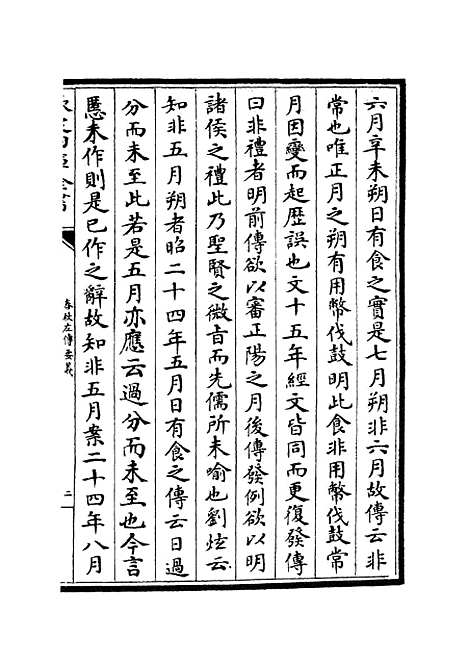 六月辛未朔日有食之實是七月朔非六月故傳云非
常也唯正月之朔有用幣伐鼓明此食非用幣伐鼓常
月因變而起歴誤也文十五年經文皆同而更復發傳
曰非禮者明前傳欲以審正陽之月後傳發例欲以明
諸侯之禮此乃聖賢之微旨而先儒所未喻也劉炫云
知非五月朔者昭二十四年五月日有食之傳云日過
分而未至此若是五月亦應云過分而未至也今言
慝未作則是已作之辭故知非五月案二十四年八月
欽定四庫全書
春秋左傳要義
二